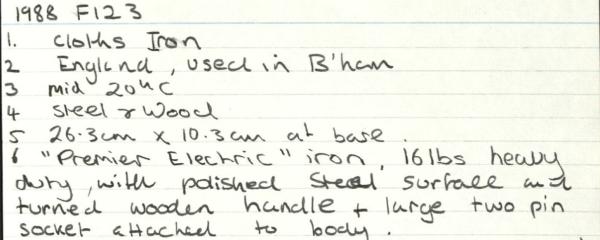 1988 F123
1. cloths Iron
2 England, used in B'ham
3 mid 20th C
4 Steel & Wood
5 26.3cm x 10.3cm at base.
6 "Premier Electric" iron, 16lbs heavy
duty, with polished Steel surface and
turned wooden handle + large two pin
socket attached to body.